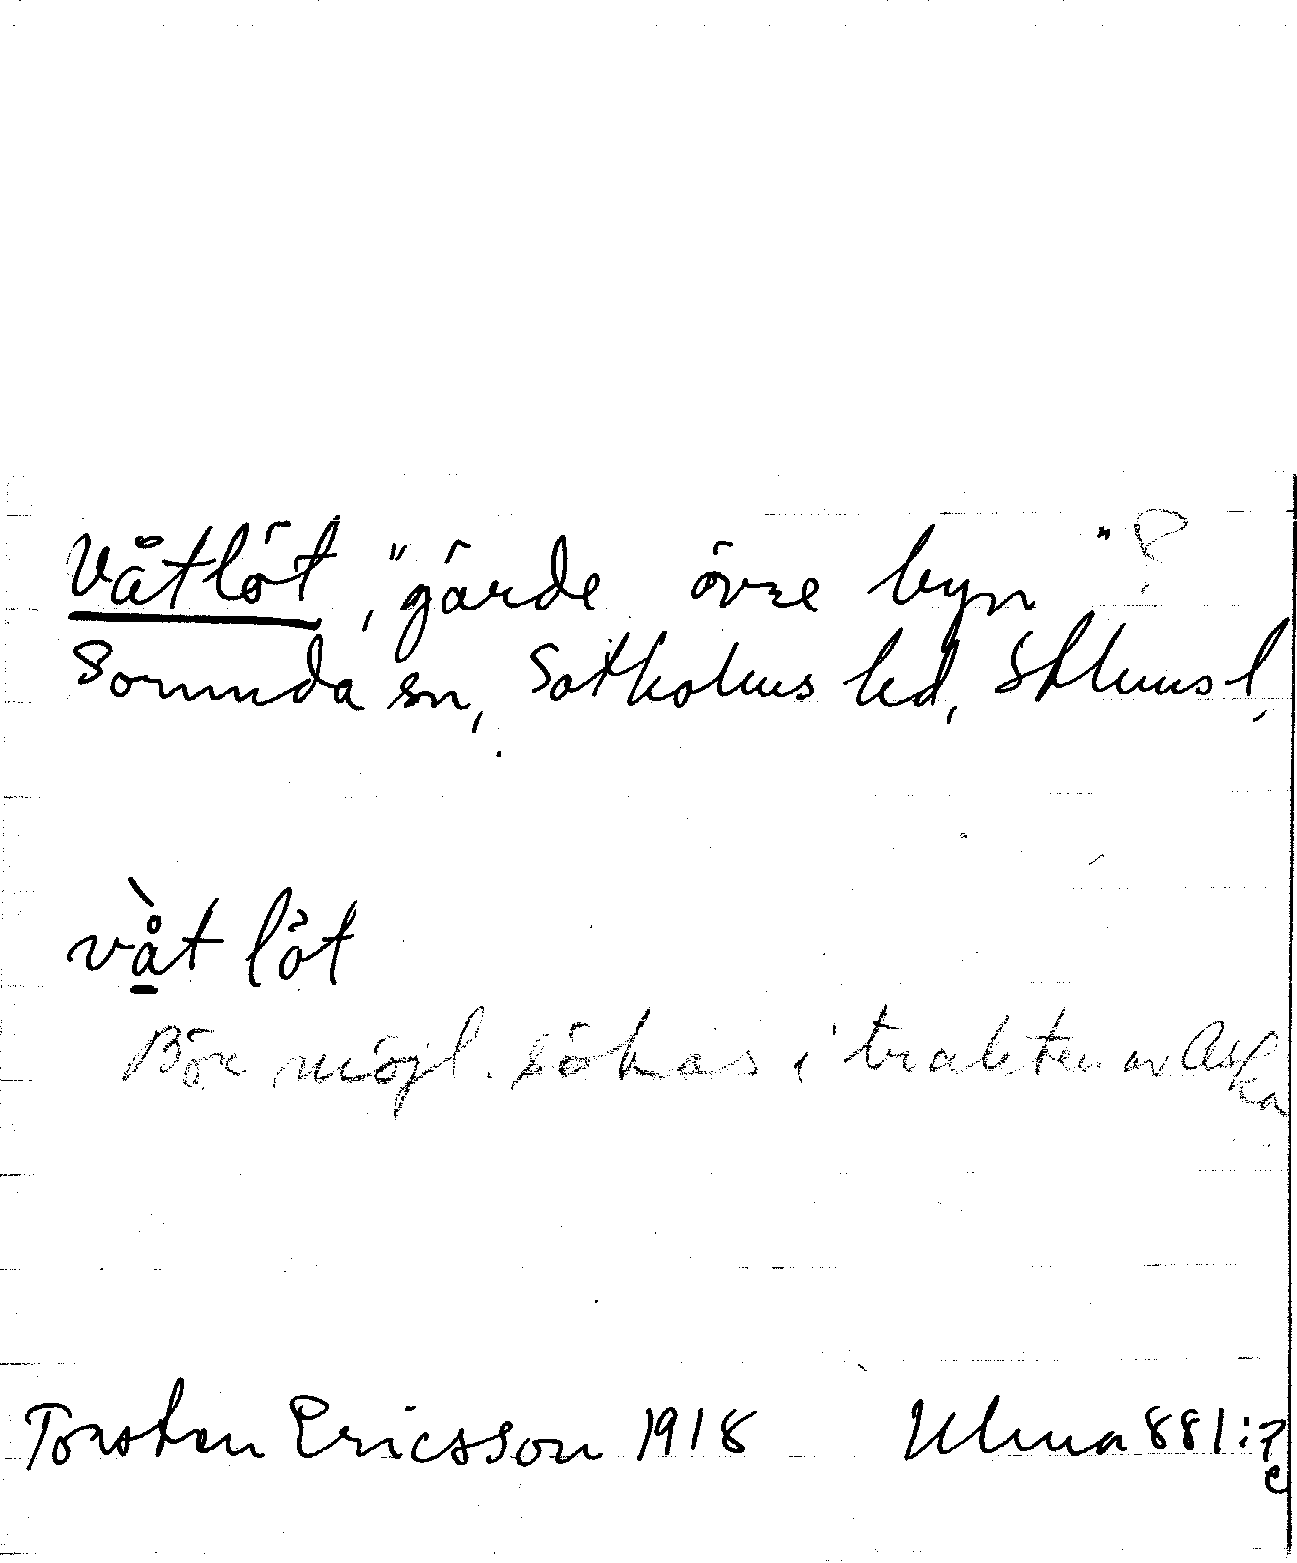 Våtlöt, "gärde övre byn" ?
Sorunda sn, Sotholms hd, Sthlms l,
våt löt
Bör möjl. sökas i trakten av Aska
Torsten Ericsson 1918 Ulma 881:7
c